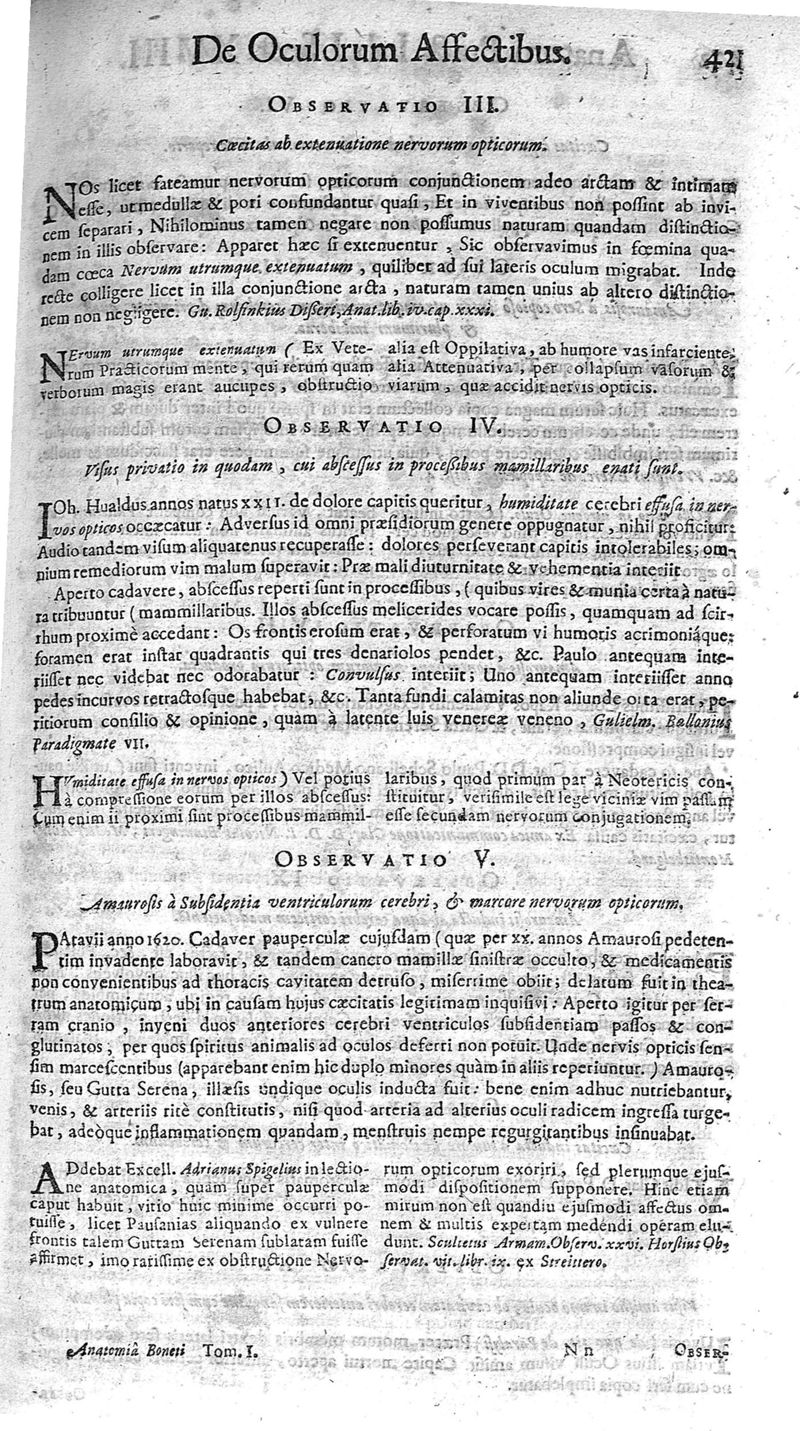 De Oculorum Affectibus. 421
OBSERVATIO III.
Cœcitas ab extenuatione nervorum opticorum.
NOs licet fateamur nervorum opticorum conjunctionem adeo arctam & intimam
esse, ut medullæ & pori confundantur quasi, Et in viventibus non possint ab invi-
cem separari, Nihilominus tamen negare non possumus naturam quandam distinctio-
nem in illis observare: Apparet hæc si extenuentur, Sic observavimus in fœmina qua-
dam cœca Nervum utrumque extenuatum, quilibet ad sui lateris oculum migrabat. Inde
recte colligere licet in illa conjunctione arcta, naturam tamen unius ab altero distinctio-
nem non negligere. Gu. Rolfinkius Dissert. Anat. lib. iv. cap. xxxi.
NErvum utrumque extenuatum ( Ex Vete-
rum Practicorum mente, qui rerum quam
verborum magis erant aucupes, obstructio
alia est Oppilativa, ab humore vas infarciente;
alia Attenuativa, per collapsum vasorum &
viarum, quæ accidit nervis opticis.
OBSERVATIO IV.
Visus privatio in quodam, cui abscessus in processibus mamillaribus enati sunt.
IOh. Hualdus annos natus XXII. de dolore capitis queritur, humiditate cerebri effusa in ner-
vos opticos occæcatur: Adversus id omni præsidiorum genere oppugnatur, nihil proficitur:
Audio tandem visum aliquatenus recuperasse: dolores perseverant capitis intolerabiles; om-
nium remediorum vim malum superavit: Præ mali diuturnitate & vehementia interiit.
Aperto cadavere, abscessus reperti sunt in processibus, ( quibus vires & munia certa à natu-
ra tribuuntur ( mammillaribus. Illos abscessus melicerides vocare possis, quamquam ad scir-
rhum proximè accedant: Os frontis erosum erat, & perforatum vi humoris acrimoniáque:
foramen erat instar quadrantis qui tres denariolos pendet, &c. Paulo antequam inte-
riisset nec videbat nec odorabatur: Convulsus interiit; Uno antequam interiisset anno
pedes incurvos retractosque habebat, &c. Tanta fundi calamitas non aliunde orta erat, pe-
ritiorum consilio & opinione, quam à latente luis venereæ veneno, Gulielm. Ballonius
Paradigmate VII.
HUmiditate effusa in nervos opticos ) Vel potius
à compressione eorum per illos abscessus:
Cum enim ii proximi sint processibus mammil-
laribus, quod primum par à Neotericis con-
stituitur, verisimile est lege viciniæ vim passam
esse secundam nervorum conjugationem.
OBSERVATIO V.
Amaurosis à Subsidentia ventriculorum cerebri, & marcore nervorum opticorum.
PAtavii anno 1620. Cadaver pauperculæ cujusdam ( quæ per xx. annos Amaurosi pedeten-
tim invadente laboravit, & tandem cancro mamillæ sinistræ occulto, & medicamentis
non convenientibus ad thoracis cavitatem detruso, miserrime obiit; delatum fuit in thea-
trum anatomicum, ubi in causam hujus cæcitatis legitimam inquisivi: Aperto igitur per ser-
ram cranio, inveni duos anteriores cerebri ventriculos subsidentiam passos & con-
glutinatos, per quos spiritus animalis ad oculos deferri non potuit. Unde nervis opticis sen-
sim marcescentibus (apparebant enim hic duplo minores quàm in aliis reperiuntur. ) Amauro-
sis, seu Gutta Serena, illæsis undique oculis inducta fuit: bene enim adhuc nutriebantur,
venis, & arteriis ritè constitutis, nisi quod arteria ad alterius oculi radicem ingressa turge-
bat, adeòque inflammationem quandam, menstruis nempe regurgitantibus insinuabat.
ADdebat Excell. Adrianus Spigelius in lectio-
ne anatomica, quam super pauperculæ
caput habuit, vitio huic minime occurri po-
tuisse, licet Pausanias aliquando ex vulnere
frontis talem Guttam Serenam sublatam fuisse
affirmet, imo rarissime ex obstructione Nervo-
rum opticorum exoriri, sed plerumque ejus-
modi dispositionem supponere. Hinc etiam
mirum non est quandiu ejusmodi affectus om-
nem & multis expertam medendi operam elu-
dunt. Scultetus Armam. Observ. xxvi. Horstius Ob-
servat. vit. libr. ix. ex Streittero.
Anatomiâ Boneti Tom. I. N n OBSER-